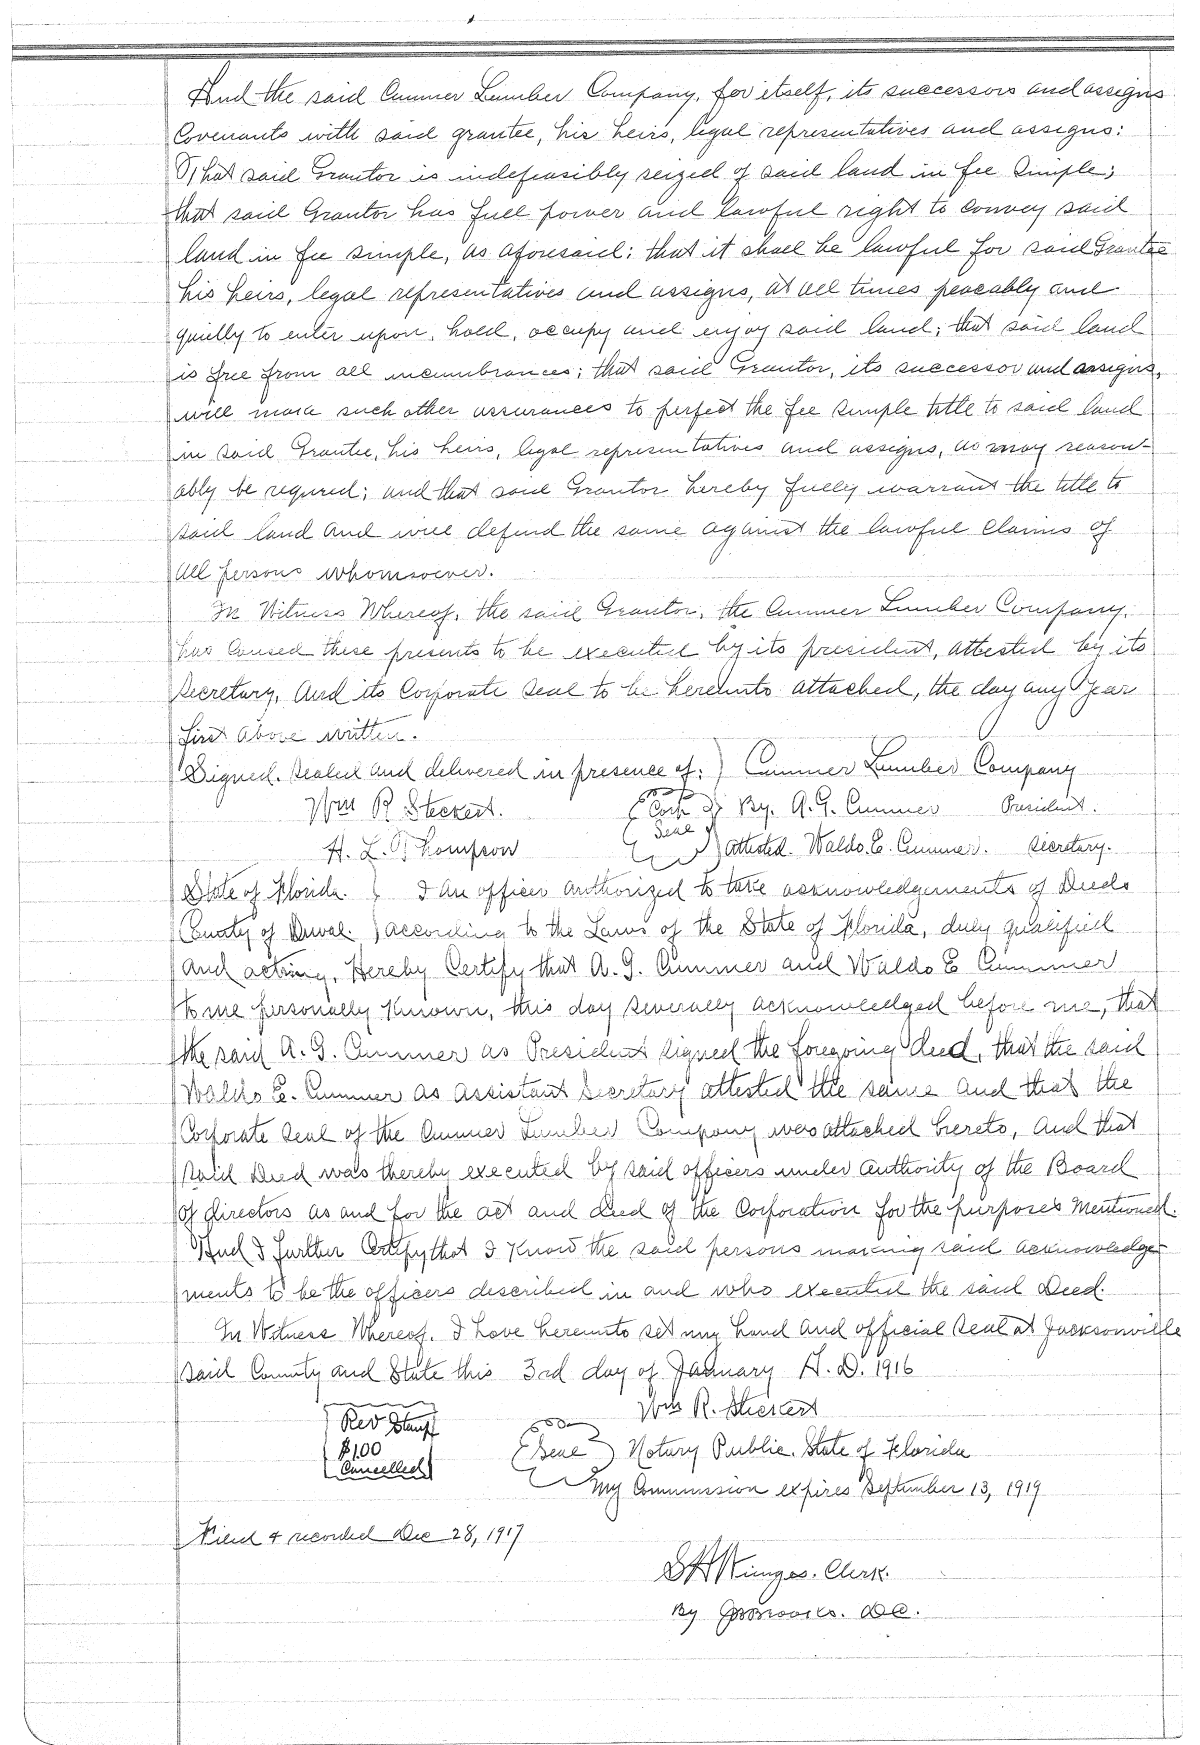 And the said Cummer Lumber Company, for itself, its successors and assigns
Covenants with said grantee, his heirs, legal representatives and assigns:
That said Grantor is indefeasibly seized of said land in fee simple;
that said Grantor has full power and lawful right to convey said
land in fee simple, as aforesaid; that it shall be lawful for said Grantee
his heirs, legal representatives and assigns, at all times peacably and
quielly to enter upon, hold, occupy and enjoy said land; that said land
is free from all incumbrances; that said Grantor, its successor and assigns,
will make such other assurances to perfect the fee simple title to said land
in said Grantee, his heirs, legal representatives and assigns, as may reason-
ably be required; and that said Grantor hereby fully warrant the title to
said land and will defend the same against the lawful claims of
all persons whomsoever.
In Witness Whereof, the said Grantor, the Cummer Lumber Company,
has caused these presents to be executed by its president, attested by its
Secretary, and its Corporate seal to be hereunto attached, the day any year
first above written.
Signed, sealed and delivered in presence of: ) Cummer Lumber Company
Wm R. Steckert. (Corp By. A. G. Cummer President.
Seal
H. L. Thompson ) attested. Waldo E. Cummer. Secretary.
State of Florida. } I an officer authorized to take acknowledgements of Deeds
County of Duval. ) according to the Laws of the State of Florida, duly qualified
and acting, Hereby Certify that A. G. Cummer and Waldo E Cummmer
to me personally known, this day severally acknowledged before me, that
the said A. G. Cummer as President signed the foregoing deed, that the said
Waldo E. Cummer as assistant Secretary attested the same and that the
Corporate seal of the Cummer Lumber Company was attached hereto, and that
said Deed was thereby executed by said officers under authority of the Board
of directors as and for the act and deed of the Corporation for the purposes mentioned.
And I further Certify that I know the said persons making said acknowledge-
ments to be the officers described in and who executed the said Deed.
In Witness Whereof, I have hereunto set my hand and official seal at Jacksonville
said County and State this 3rd day of January A. D. 1916
Wm R. Steckert
Rev Stamp
$1.00
Cancelled
(Seal) Notary Public. State of Florida
My Commission expires September 13, 1919
Filed & recorded Dec 28, 1917
Clerk.
By Brooks. D.C.